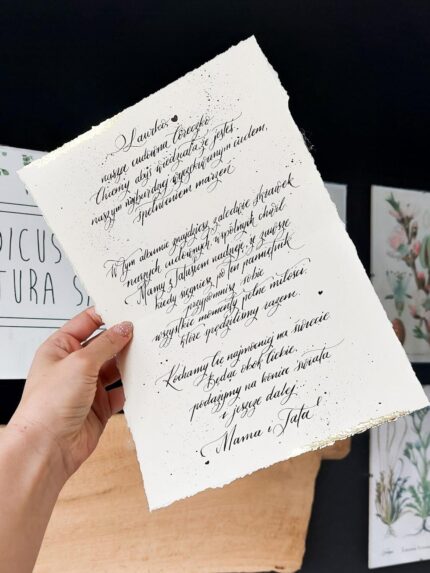 nasza cudowna Córeczko
Chcemy abyś wiedziała że jesteś
naszym najbardziej wyczekiwanym cudem,
spełnieniem marzeń
W tym albumie znajdziesz zaledwie skrawek
naszych cudownych wspólnych chwil
Mamy z Tatusiem nadzieję, że zawsze
kiedy sięgniesz po ten pamiętnik
przypomnisz sobie
wszystkie momenty pełne miłości
które spędziliśmy razem.
Kochamy Cię najmocniej na świecie
Będąc obok Ciebie
podążymy na koniec świata
i jeszcze dalej
Mama i Tata
DICUS
TURA SA